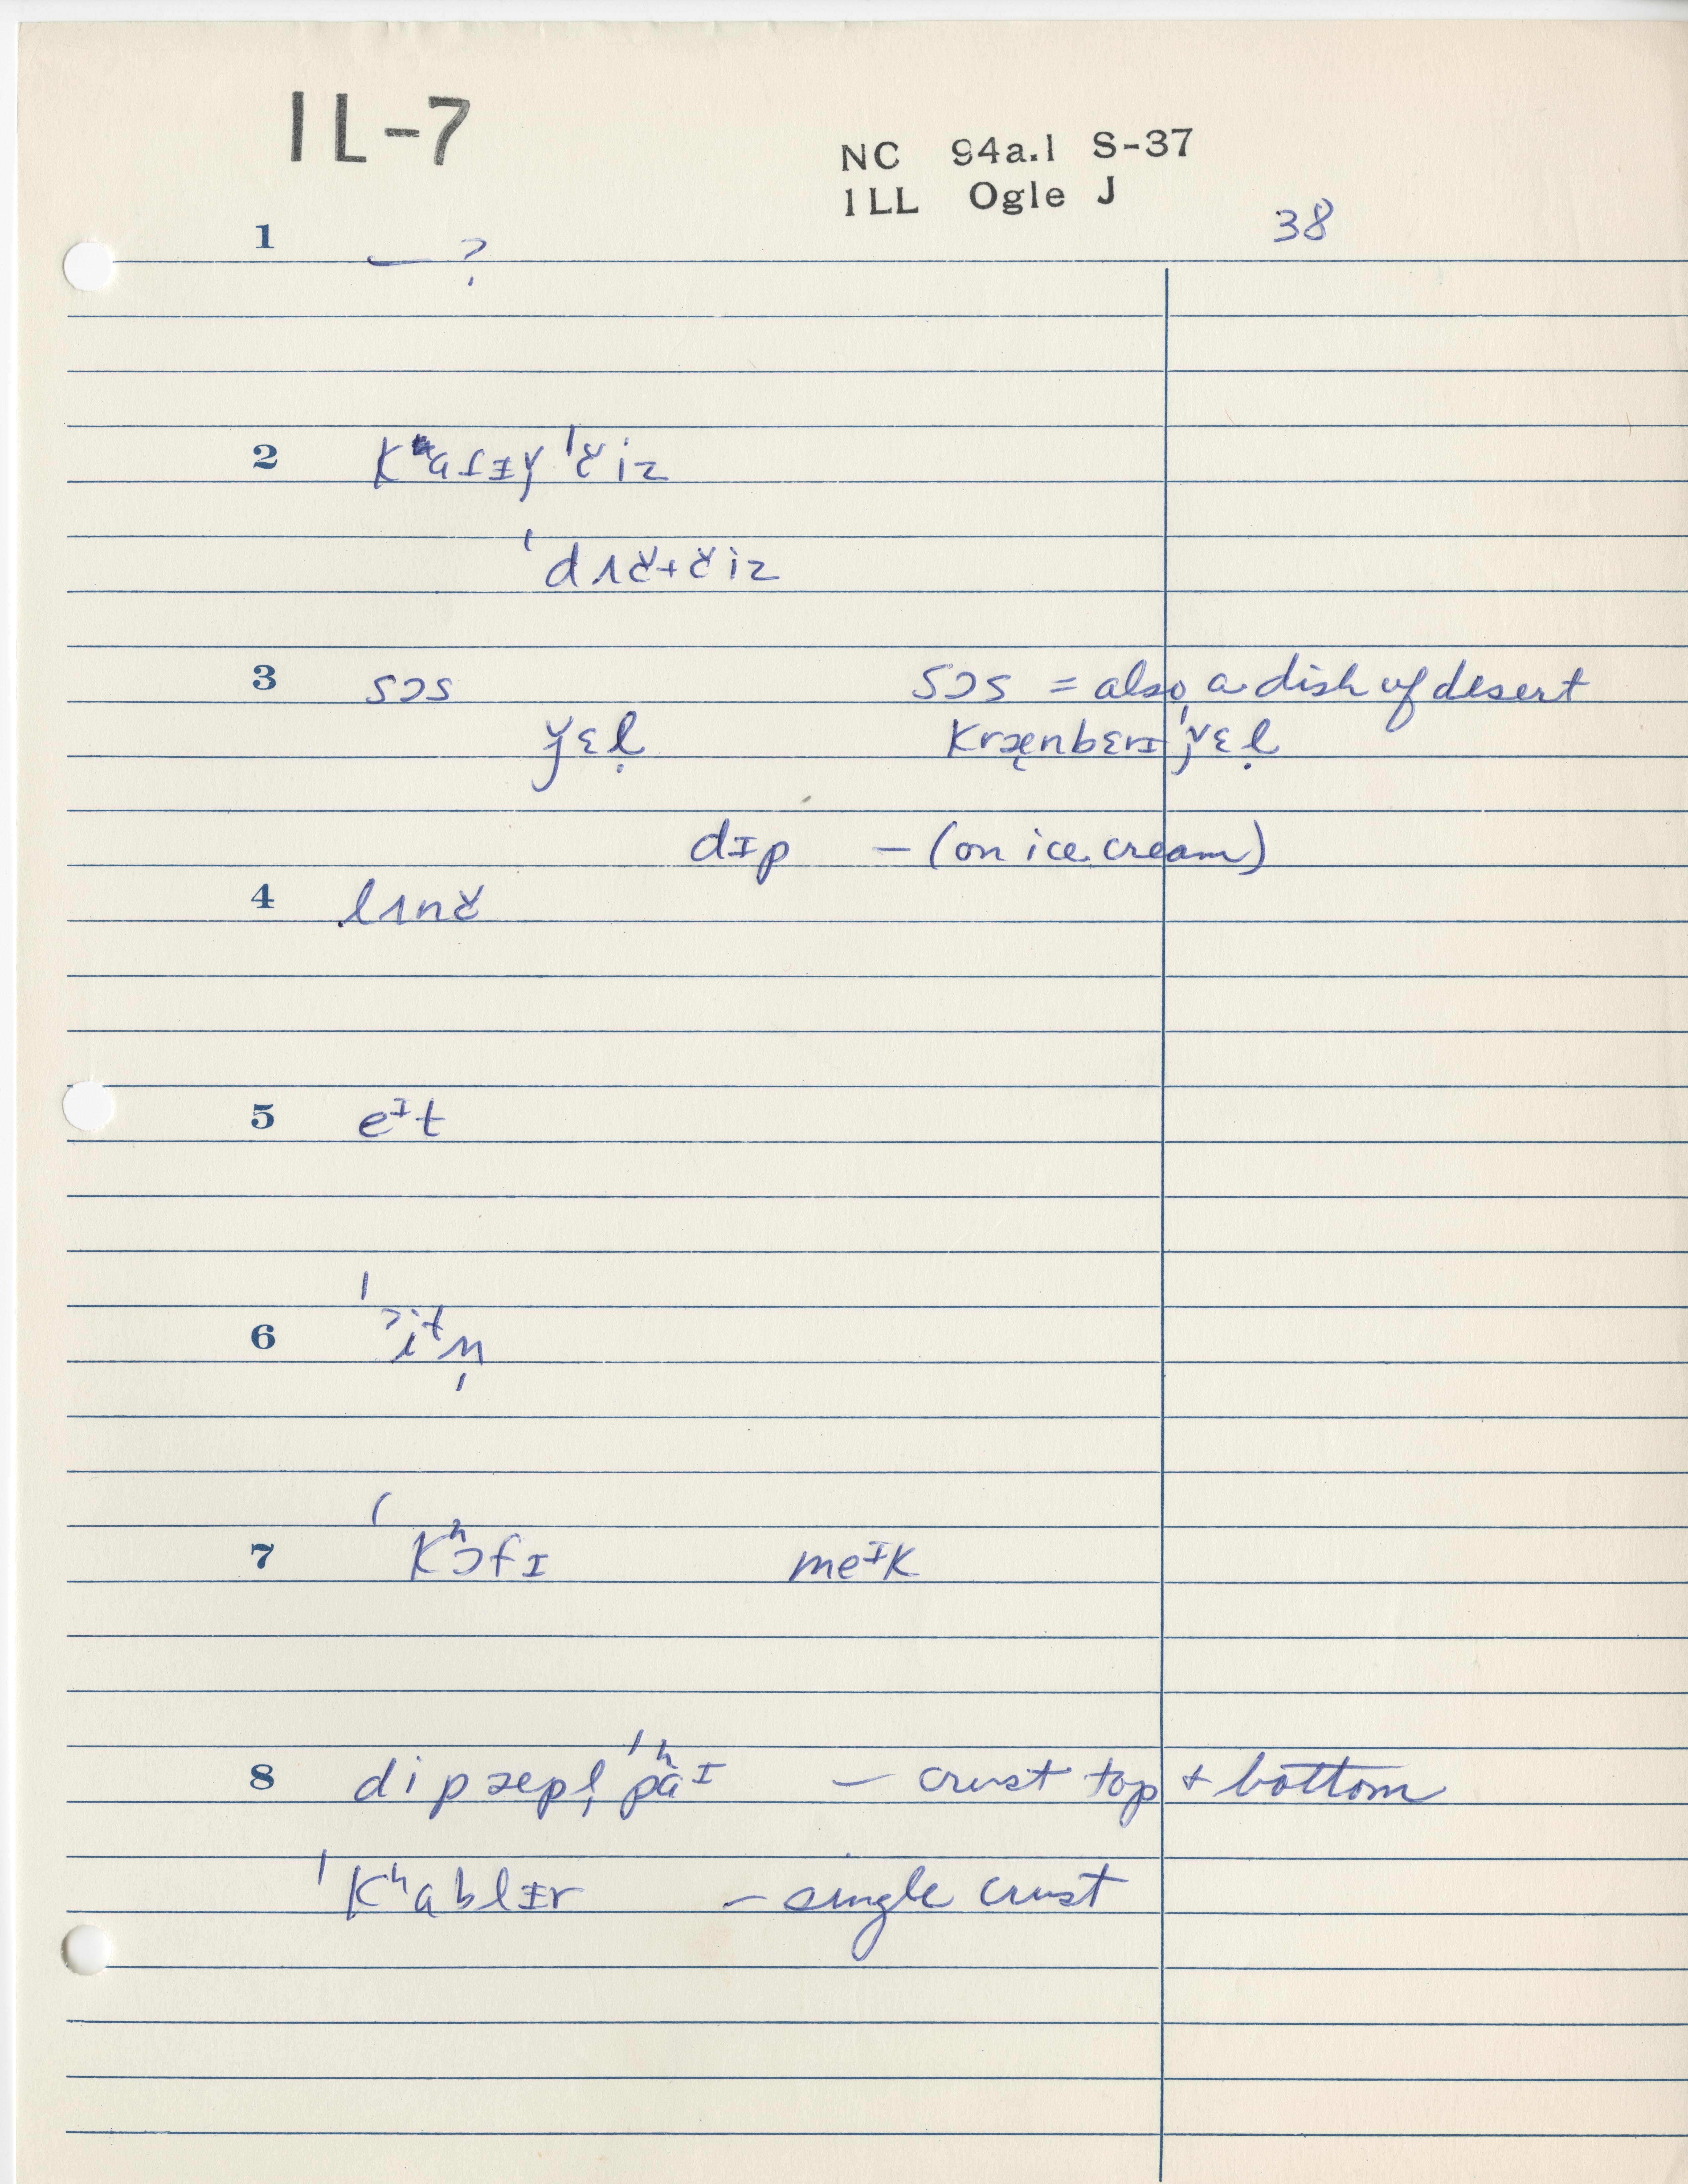 IL-7
NC 94a.1 S-37
ILL Ogle J
38
1 — ?
2 Kʰɑtɪǰ ˈčiz
ˈdʌč+čiz
3 sɔs sɔs = also a dish of desert
ǰɛḷ Kræ̨nbɛrɪ ˈǰɛḷ
dɪp – (on ice cream)
4 lʌnč
5 eᴵt
6 ˈitn̩
7 ˈKʰɔfɪ meᴵK
8 dip æpl̩ ˈpʰaᴵ – crust top + bottom
ˈKʰablɪr – single crust